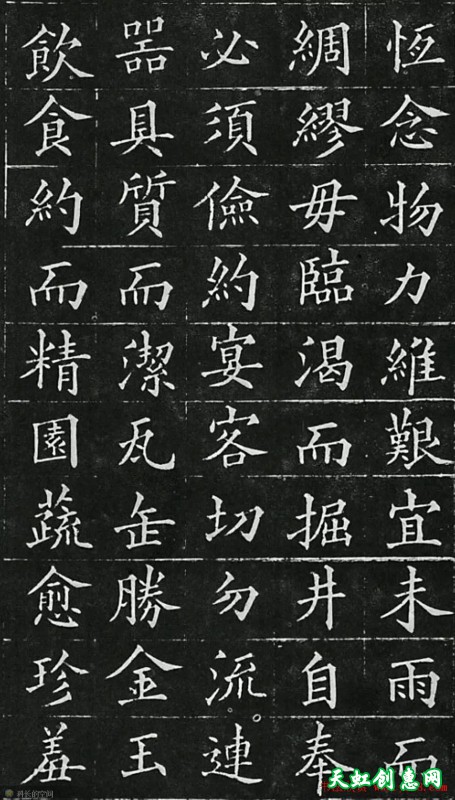 恆念物力維艱宜未雨而
綢繆毋臨渴而掘井自奉
必須儉約宴客切勿流連
器具質而潔瓦缶勝金玉
飲食約而精園蔬愈珍羞
天虹创意网
科长的空间